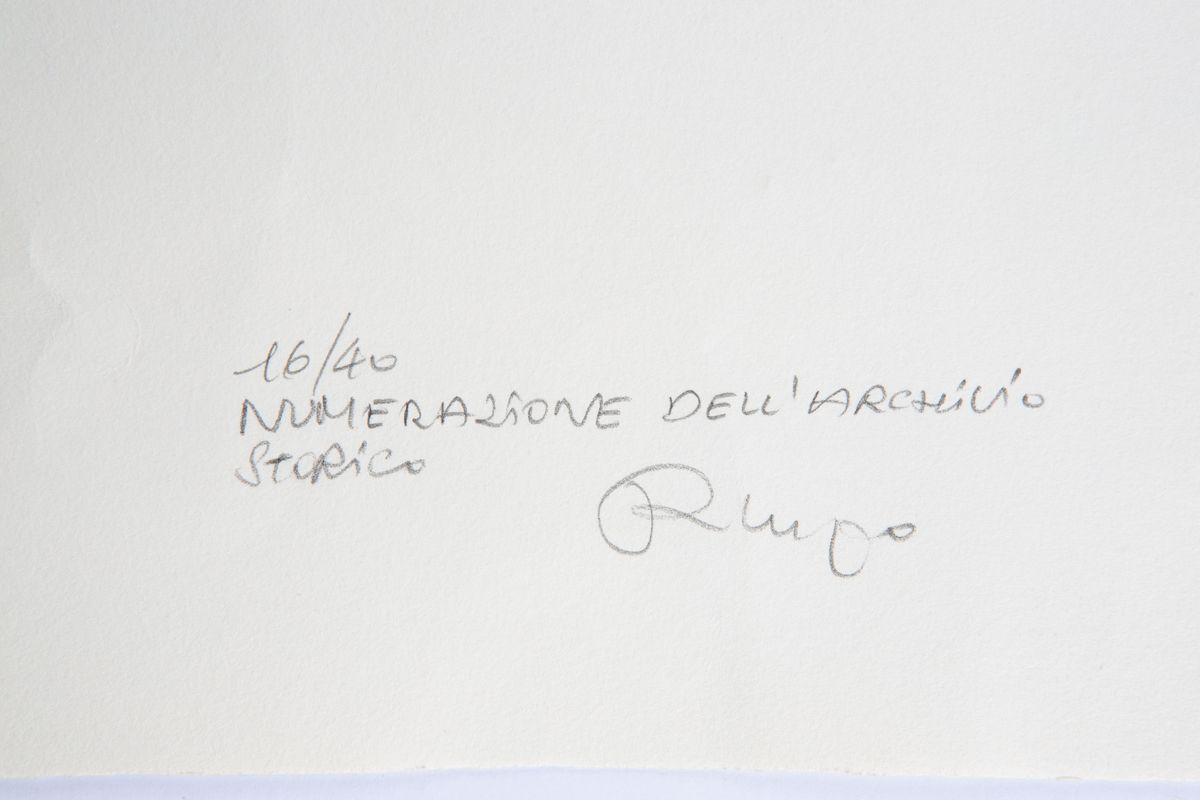 16/40
NUMERAZIONE DELL'ARCHIVIO
STORICO